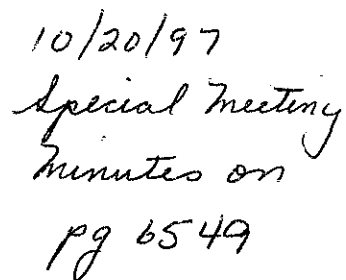 10/20/97
Special Meeting
Minutes on
pg 6549